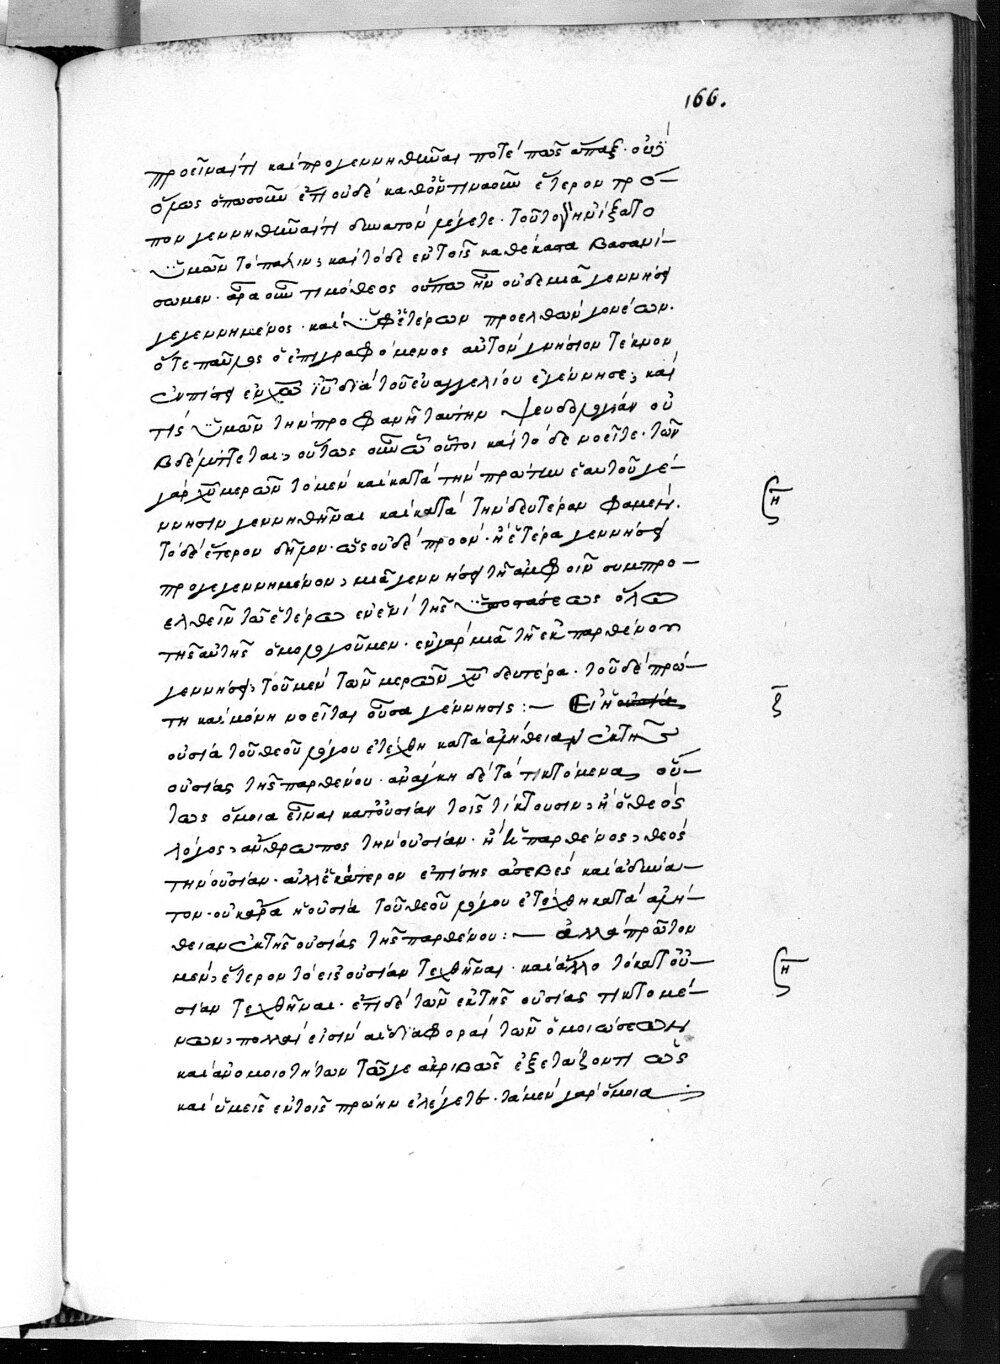 166.
προεῖναί τι καὶ προγεννηθῆναι ποτέ πως ἅπαξ. οὐχ
ὅμως ὁπωσοῦν ἔτι οὐδὲ καθ' ὅντινα οὖν ἕτερον τρό-
πον γεννηθῆναί τι δυνατὸν λέγετε. τοῦτο ᾐνίξατο
ὑμῶν τὸ πάλιν; καὶ τόδε ἐν τοῖς καθ' ἕκαστα βασανί-
σωμεν. ἆρα οὖν τιμόθεος οὔπω ἦν οὐδεμιᾷ γεννήσει
γεγεννημένος. καὶ ὑφ' ἑτέρων προελθὼν γονέων.
ὅτε παῦλος ὁ ἐπιγραφόμενος αὐτὸν γνήσιον τέκνον
ἐν πίστει ἐν χῶ ἰῦ διὰ τοῦ εὐαγγελίου ἐγέννησε; καὶ
τίς ὑμῶν τὴν προφανῆ ταύτην ψευδολογίαν οὐ
βδελύττεται; οὕτως οὖν ὦ οὗτοι καὶ τόδε νοεῖτε. τῶν
γὰρ χῦ μερῶν τὸ μὲν καὶ κατὰ τὴν πρώτην ἑαυτοῦ γέ-
ννησιν γεννηθῆναι καὶ κατὰ τὴν δευτέραν φαμέν.
τὸ δὲ ἕτερον δῆλον. ὡς οὐδὲ προόν. ἢ ἑτέρα γεννήσει
προγεγεννημένον; μιᾷ γεννήσει τῇ ἀμφοῖν συμπρο-
ελθεῖν τῶ ἑτέρω ἐν ἑνὶ τῆς ὑποστάσεως ὅλω
τῆς αὐτῆς ὁμολογοῦμεν. ἐν γὰρ μιᾷ τῇ ἐκ παρθένου
γεννήσει; τοῦ μὲν τῶν μερῶν χῦ δευτέρα. τοῦ δὲ πρώ-
τη καὶ μόνη νοεῖται οὖσα γέννησις :— Εἰ ἡ
οὐσία τοῦ θεοῦ λόγου ἐτέχθη κατὰ ἀλήθειαν ἐκ τῆς
οὐσίας τῆς παρθένου. ἀνάγκη δὲ τὰ τικτόμενα οὕ-
τως ὅμοια εἶναι κατ' οὐσίαν τοῖς τίκτουσιν; ἢ ὁ θεὸς
λόγος; ἄνθρωπος τὴν οὐσίαν. ἢ ἡ παρθένος; θεὸς
τὴν οὐσίαν. ἀλλ' ἑκάτερον ἐπίσης ἀσεβὲς καὶ ἀδύνα-
τον. οὐκ ἄρα ἡ οὐσία τοῦ θεοῦ λόγου ἐτέχθη κατὰ ἀλή-
θειαν ἐκ τῆς οὐσίας τῆς παρθένου :— ἀλλὰ πρῶτον
μὲν; ἕτερον τὸ εἰς οὐσίαν τεχθῆναι. καὶ ἄλλο τὸ κατ' οὐ-
σίαν τεχθῆναι. ἔτι δὲ τῶν ἐκ τῆς οὐσίας τικτομέ-
νων; πολλαὶ εἰσὶν αἱ διαφοραὶ τῶν ὁμοιώσεων
καὶ ἀνομοιοτήτων τῶ γε ἀκριβῶς ἐξετάζοντι ὡς
καὶ ὑμεῖς ἐν τοῖς πρώην ἐλέγετε. τὰ μὲν γὰρ ὅμοια